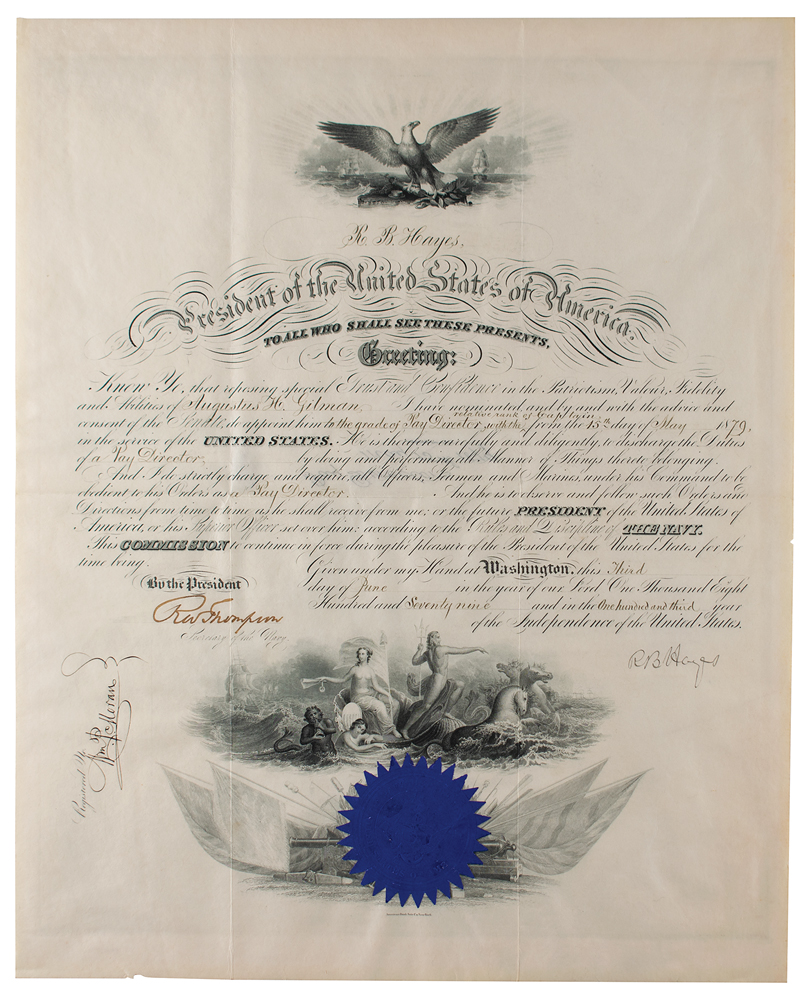 R. B. Hayes,
President of the United States of America.
TO ALL WHO SHALL SEE THESE PRESENTS,
Greeting:
Know Ye, that reposing special Trust and Confidence in the Patriotism, Valour, Fidelity
and Abilities of Augustus H. Gilman I have nominated and by and with the advice and
relative rank of Captain,
consent of the Senate, do appoint him to the grade of Pay Director, with the from the 15th day of May 1879,
in the service of the UNITED STATES. He is therefore carefully and diligently, to discharge the Duties
of a Pay Director, by doing and performing all Manner of Things thereto belonging.
And I do strictly charge, and require all Officers, Seamen and Marines, under his Command to be
obedient to his Orders as a Pay Director. And he is to observe and follow such Orders and
Directions from time to time as he shall receive from me; or the future PRESIDENT of the United States of
America, or his Superior Officer set over him; according to the Rules and Discipline of THE NAVY.
This COMMISSION to continue in force during the pleasure of the President of the United States for the
time being.
Given under my Hand at Washington, this Third
By the President
day of June in the year of our Lord One Thousand Eight
Hundred and Seventy nine and in the One hundred and third year
of the Independence of the United States.
RW Thompson
Secretary of the Navy
R B Hayes
Registered
Wm P Moran